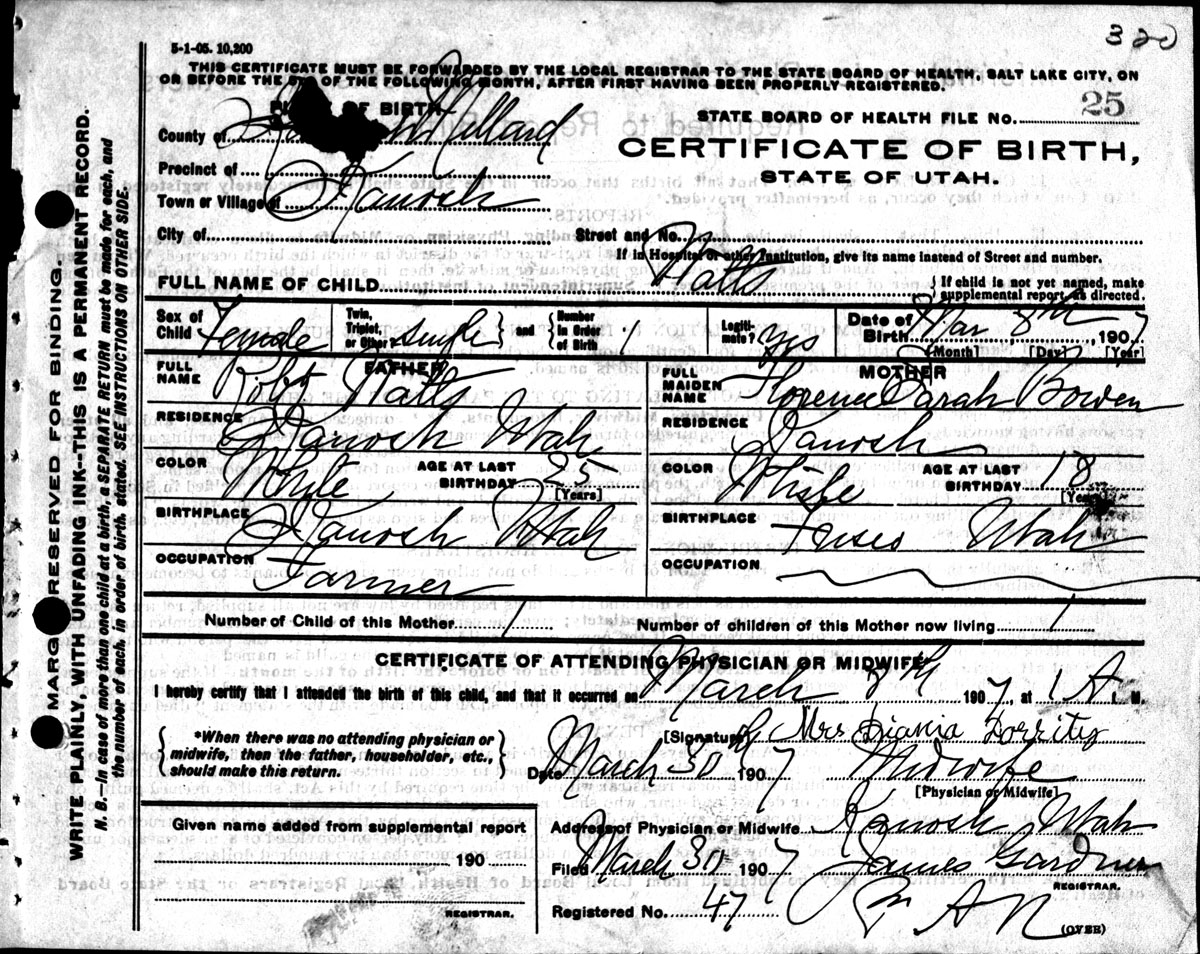 320
5-1-05. 10,200
THIS CERTIFICATE MUST BE FORWARDED BY THE LOCAL REGISTRAR TO THE STATE BOARD OF HEALTH, SALT LAKE CITY, ON
OR BEFORE THE OF THE FOLLOWING MONTH, AFTER FIRST HAVING BEEN PROPERLY REGISTERED.
OF BIRTH
STATE BOARD OF HEALTH FILE NO. 25
County of Millard
CERTIFICATE OF BIRTH,
Precinct of
STATE OF UTAH.
Town or Village of Kanosh
City of
Street and No.
If in Hospital or other Institution, give its name instead of Street and number.
FULL NAME OF CHILD Watts
If child is not yet named, make
supplemental report as directed.
Sex of Child Female
Twin, Triplet, or Other single and Number in Order of Birth 1
Legiti- mate? yes
Date of Birth Mar 8th 1907
[Month] [Day] [Year]
FATHER
FULL NAME Robt Watts
RESIDENCE Kanosh Utah
COLOR AGE AT LAST BIRTHDAY 25
[Years]
BIRTHPLACE Kanosh Utah
OCCUPATION Farmer
MOTHER
FULL MAIDEN NAME Florence Sarah Bowen
RESIDENCE Kanosh
COLOR AGE AT LAST BIRTHDAY 18
[Years]
BIRTHPLACE Utah
OCCUPATION
Number of Child of this Mother 1
Number of children of this Mother now living 1
CERTIFICATE OF ATTENDING PHYSICIAN OR MIDWIFE
I hereby certify that I attended the birth of this child, and that it occurred on March 8th 1907, at 1 A. M.
*When there was no attending physician or
midwife, then the father, householder, etc.,
should make this return.
[Signature] Mrs Dorrity
Date March 30th 1907 Midwife
[Physician or Midwife]
Given name added from supplemental report
190
REGISTRAR.
Address of Physician or Midwife Kanosh Utah
Filed March 30 1907 James Gardner
REGISTRAR.
Registered No. 47
(OVER)
MARGIN RESERVED FOR BINDING.
WRITE PLAINLY, WITH UNFADING INK--THIS IS A PERMANENT RECORD.
N. B.--In case of more than one child at a birth, a SEPARATE RETURN must be made for each, and
the number of each, in order of birth, stated. SEE INSTRUCTIONS ON OTHER SIDE.